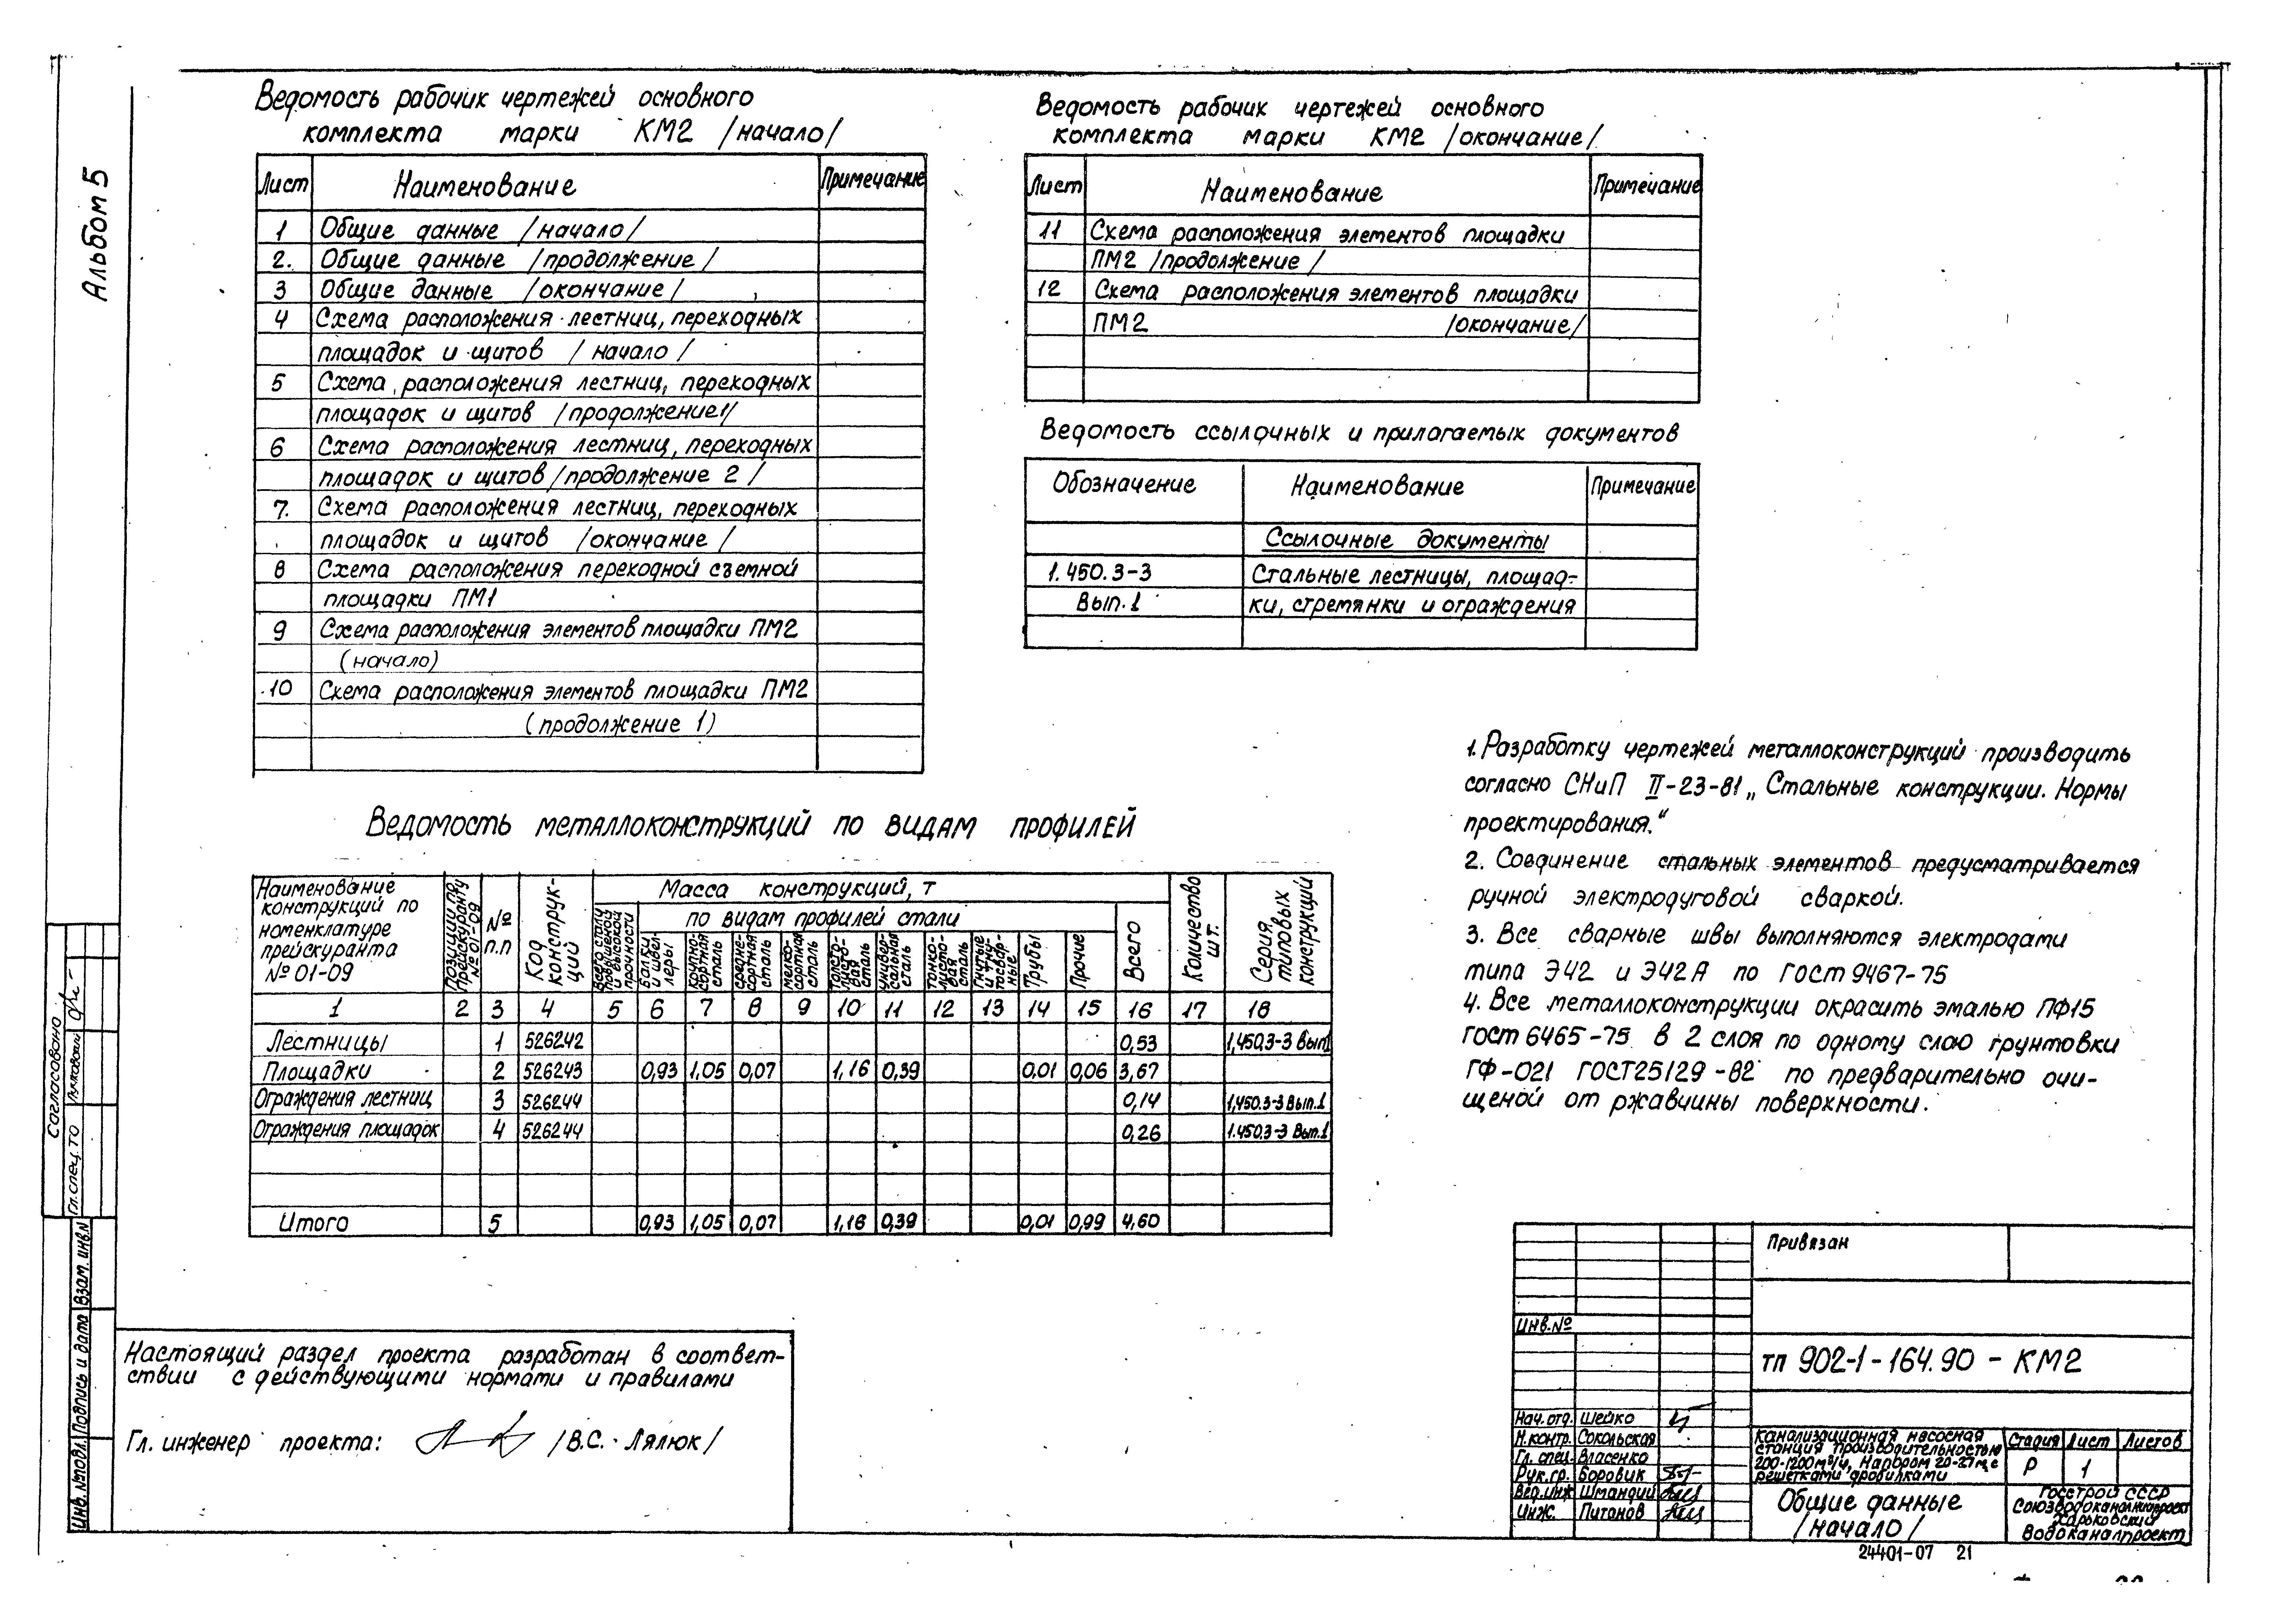 Альбом 5
Ведомость рабочих чертежей основного
комплекта марки КМ2 /начало/
Лист Наименование Примечание
1 Общие данные /начало/
2. Общие данные /продолжение/
3 Общие данные /окончание/
4 Схема расположения лестниц, переходных
площадок и щитов /начало/
5 Схема расположения лестниц, переходных
площадок и щитов /продолжение 1/
6 Схема расположения лестниц, переходных
площадок и щитов /продолжение 2/
7. Схема расположения лестниц, переходных
площадок и щитов /окончание/
8 Схема расположения переходной сземной
площадки ПМ1
9 Схема расположения элементов площадки ПМ2
(начало)
10 Схема расположения элементов площадки ПМ2
(продолжение 1)
Ведомость рабочих чертежей основного
комплекта марки КМ2 /окончание/
Лист Наименование Примечание
11 Схема расположения элементов площадки
ПМ2 /продолжение/
12 Схема расположения элементов площадки
ПМ2 /окончание/
Ведомость ссылочных и прилагаемых документов
Обозначение Наименование Примечание
Ссылочные документы
1.450.3-3 Стальные лестницы, площад-
Вып.1 ки, стремянки и ограждения
Ведомость металлоконструкций по видам профилей
Наименование
конструкций по
номенклатуре
прейскуранта
№ 01-09
Позиции по
прейскуранту
№ 01-09
№
п.п
Код
конструк-
ций
Масса конструкций, т
Всего стали
повышенной
и высокой
прочности
по видам профилей стали
Балки
и швел-
леры
Крупно-
сортная
сталь
Средне-
сортная
сталь
Мелко-
сортная
сталь
Толсто-
листо-
вая
сталь
Универ-
сальная
сталь
Тонко-
листо-
вая
сталь
Гнутые
и гну-
тосвар-
ные
Трубы
Прочие
Всего
Количество
шт.
Серия
типовых
конструкций
1 2 3 4 5 6 7 8 9 10 11 12 13 14 15 16 17 18
Лестницы 1 526242 0,53 1,450.3-3 Вып1
Площадки 2 526243 0,93 1,05 0,07 1,16 0,39 0,01 0,06 3,67
Ограждения лестниц 3 526244 0,14 1,450.3-3 Вып.1
Ограждения площадок 4 526244 0,26 1.450.3-3 Вып.1
Итого 5 0,93 1,05 0,07 1,16 0,39 0,01 0,99 4,60
1. Разработку чертежей металлоконструкций производить
согласно СНиП II-23-81 „Стальные конструкции. Нормы
проектирования."
2. Соединение стальных элементов предусматривается
ручной электродуговой сваркой.
3. Все сварные швы выполняются электродами
типа Э42 и Э42А по ГОСТ 9467-75
4. Все металлоконструкции окрасить эмалью ПФ15
ГОСТ 6465-75 в 2 слоя по одному слою грунтовки
ГФ-021 ГОСТ25129-82 по предварительно очи-
щеной от ржавчины поверхности.
Настоящий раздел проекта разработан в соответ-
ствии с действующими нормами и правилами
Гл. инженер проекта: /В.С. Лялюк/
Согласовано
Гл. спец. ТО
Взам. инв.N
Подпись и дата
Инв.№подл.
Привязан
Инв.№
ТП 902-1-164.90 - КМ2
Нач. отд. Шейко
Н.контр. Сокольская
Гл. спец. Власенко
Рук.гр. Боровик
Вед.инж Шмандий
Инж. Питонов
Канализационная насосная
станция производительностью
200-1200м³/ч, Напором 20-27м, с
решетками дробилками
Стадия Лист Листов
Р 1
Общие данные
/начало/
Госстрой СССР
Союзводоканалниипроект
Харьковский
Водоканалпроект
24401-07 21